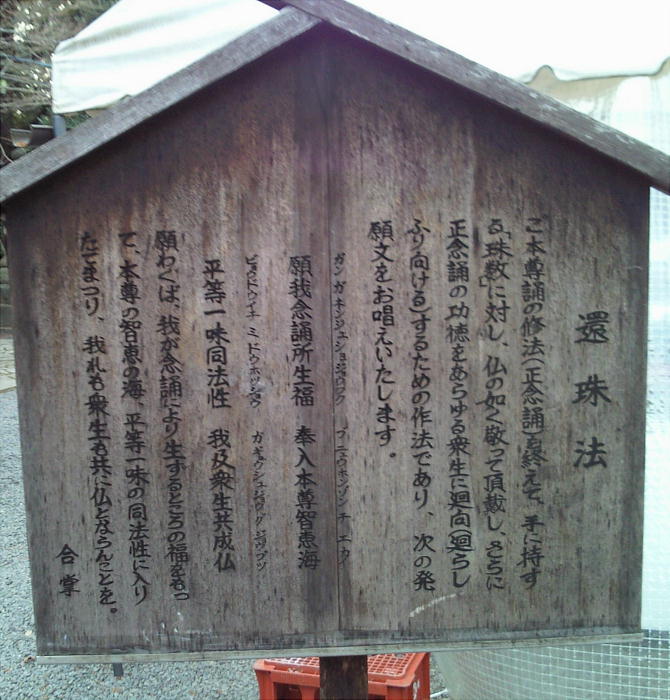 還珠法
ご本尊誦の修法(正念誦)を終えて、手に持す
る「珠数」に対し、仏の如く敬って頂戴し、さらに
正念誦の功徳をあらゆる衆生に廻向(廻らし
ふり向ける)するための作法であり、次の発
願文をお唱えいたします。
ガンガネンジュショジョウフク ブニュウホンゾンチエカイ
願我念誦所生福 奉入本尊智恵海
ビョウドウイチミドウホッショウ ガギュウシュジョウグジョウブツ
平等一味同法性 我及衆生共成仏
願わくは、我が念誦により生ずるところの福をもっ
て、本尊の智恵の海、平等一味の同法性に入り
たてまつり、我れも衆生も共に仏とならんことを。
合掌